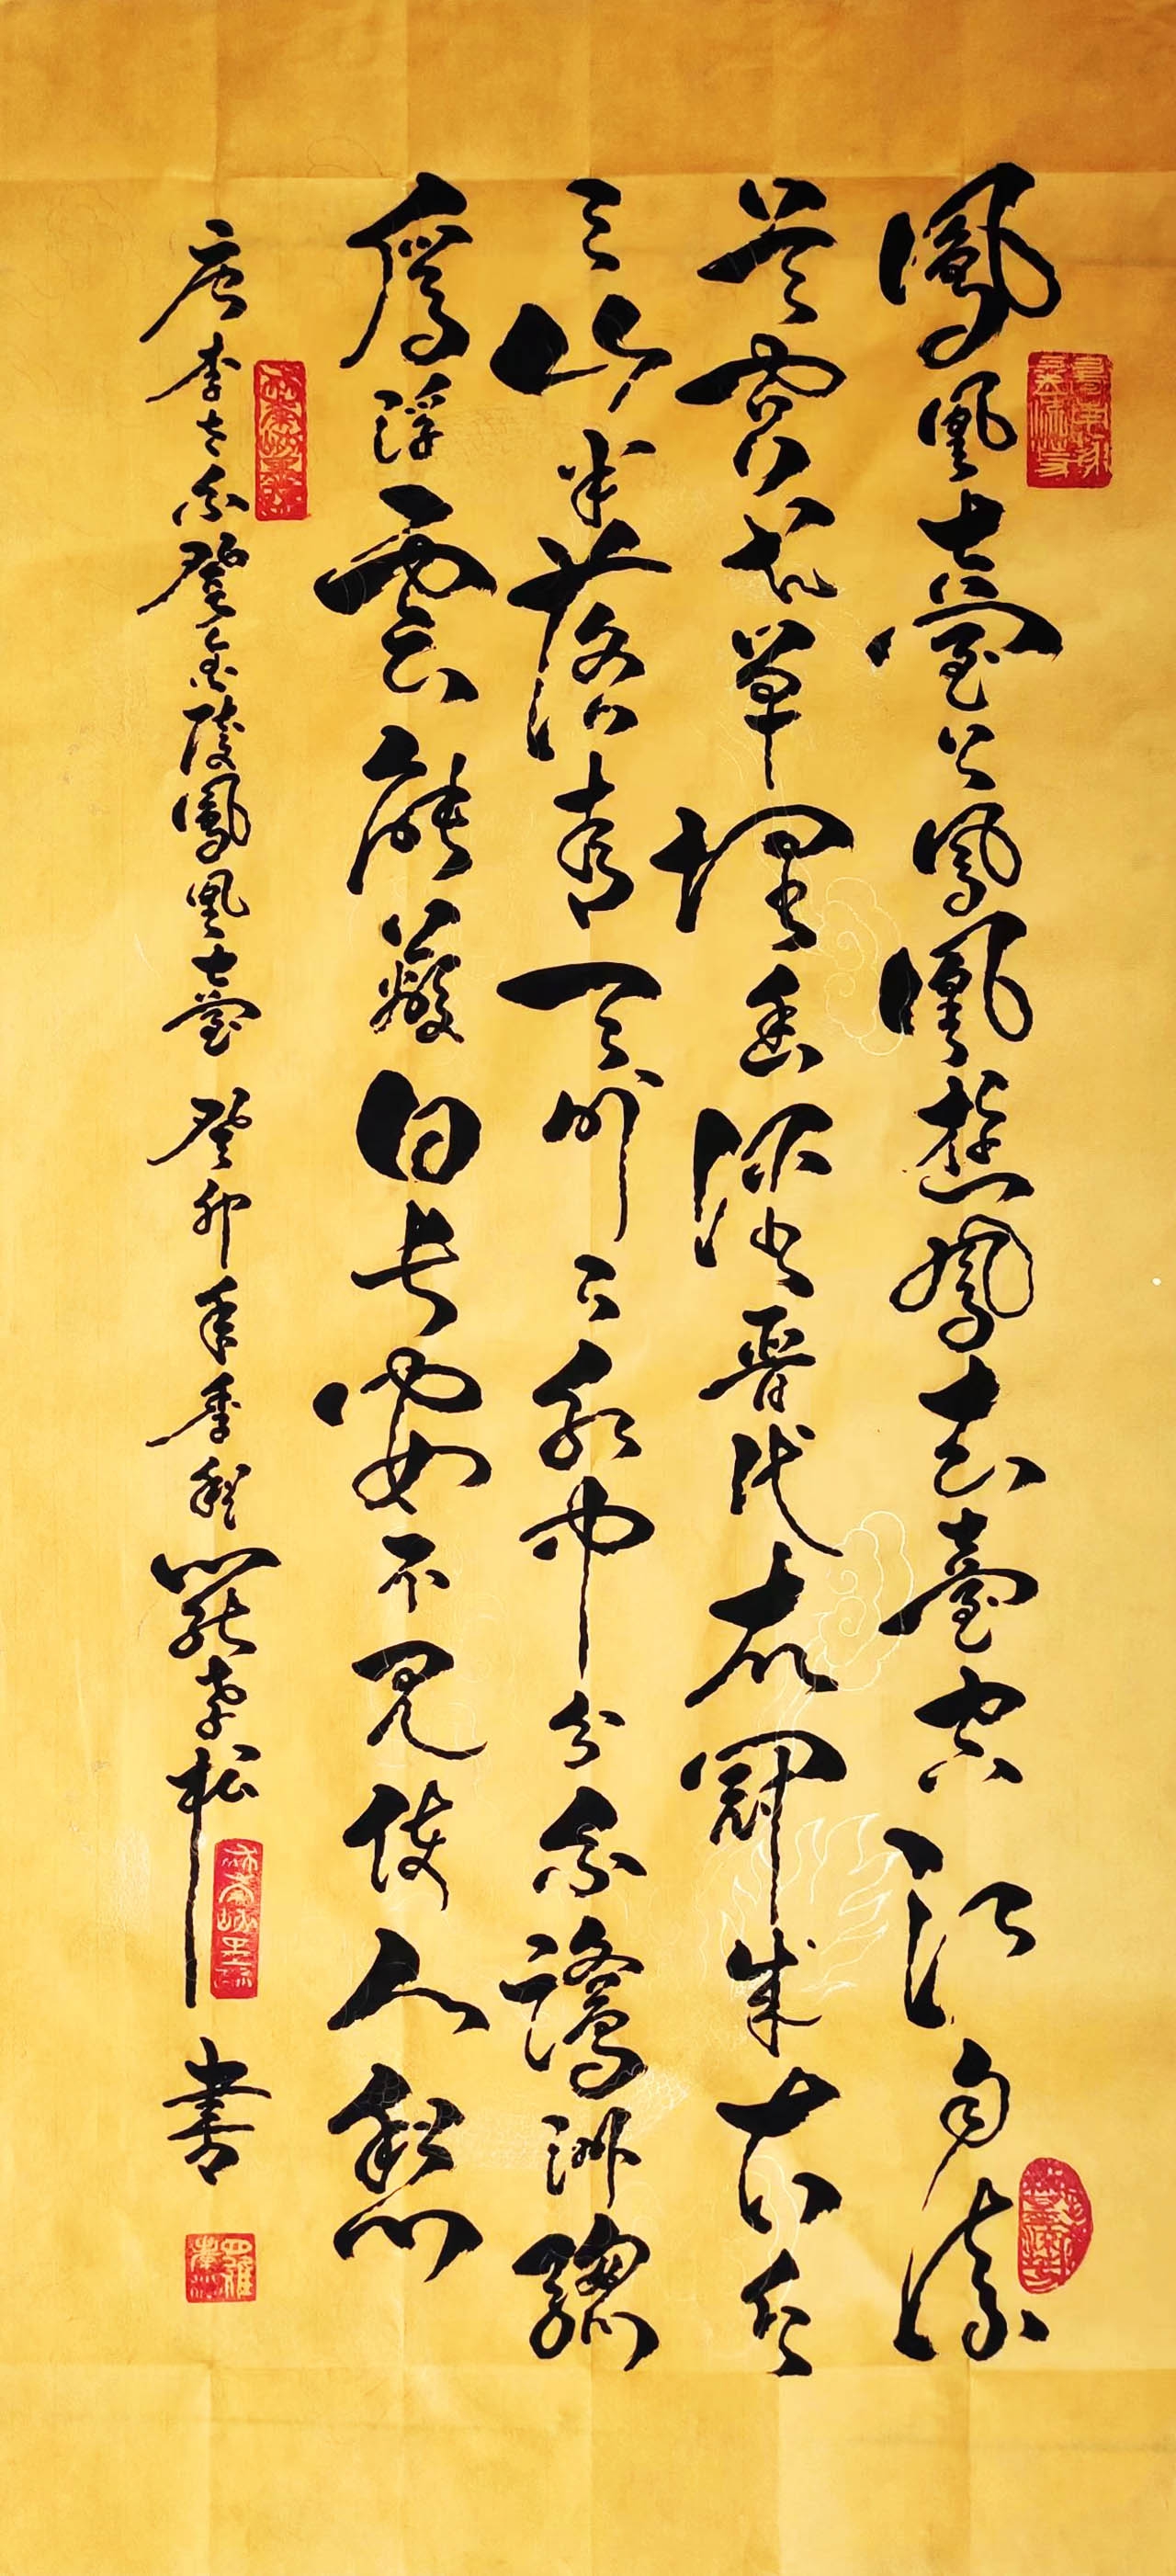 鳳凰臺上鳳凰遊鳳去臺空江自流
吳宮花草埋幽徑晉代衣冠成古丘
三山半落青天外二水中分白鷺洲總
為浮雲能蔽日長安不見使人愁
唐李太白登金陵鳳凰臺 癸卯年季秋羅孝松書